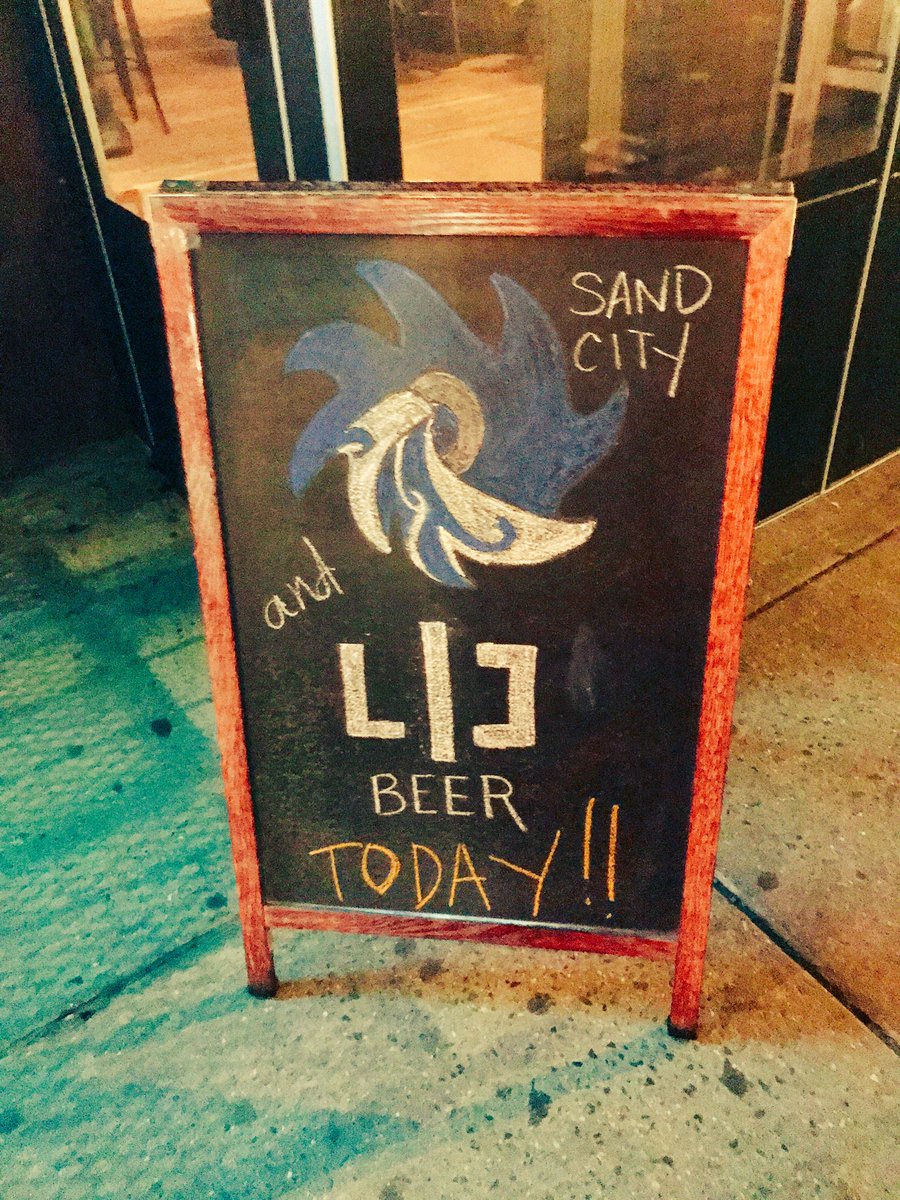 SAND
CITY
and
BEER
TODAY!!